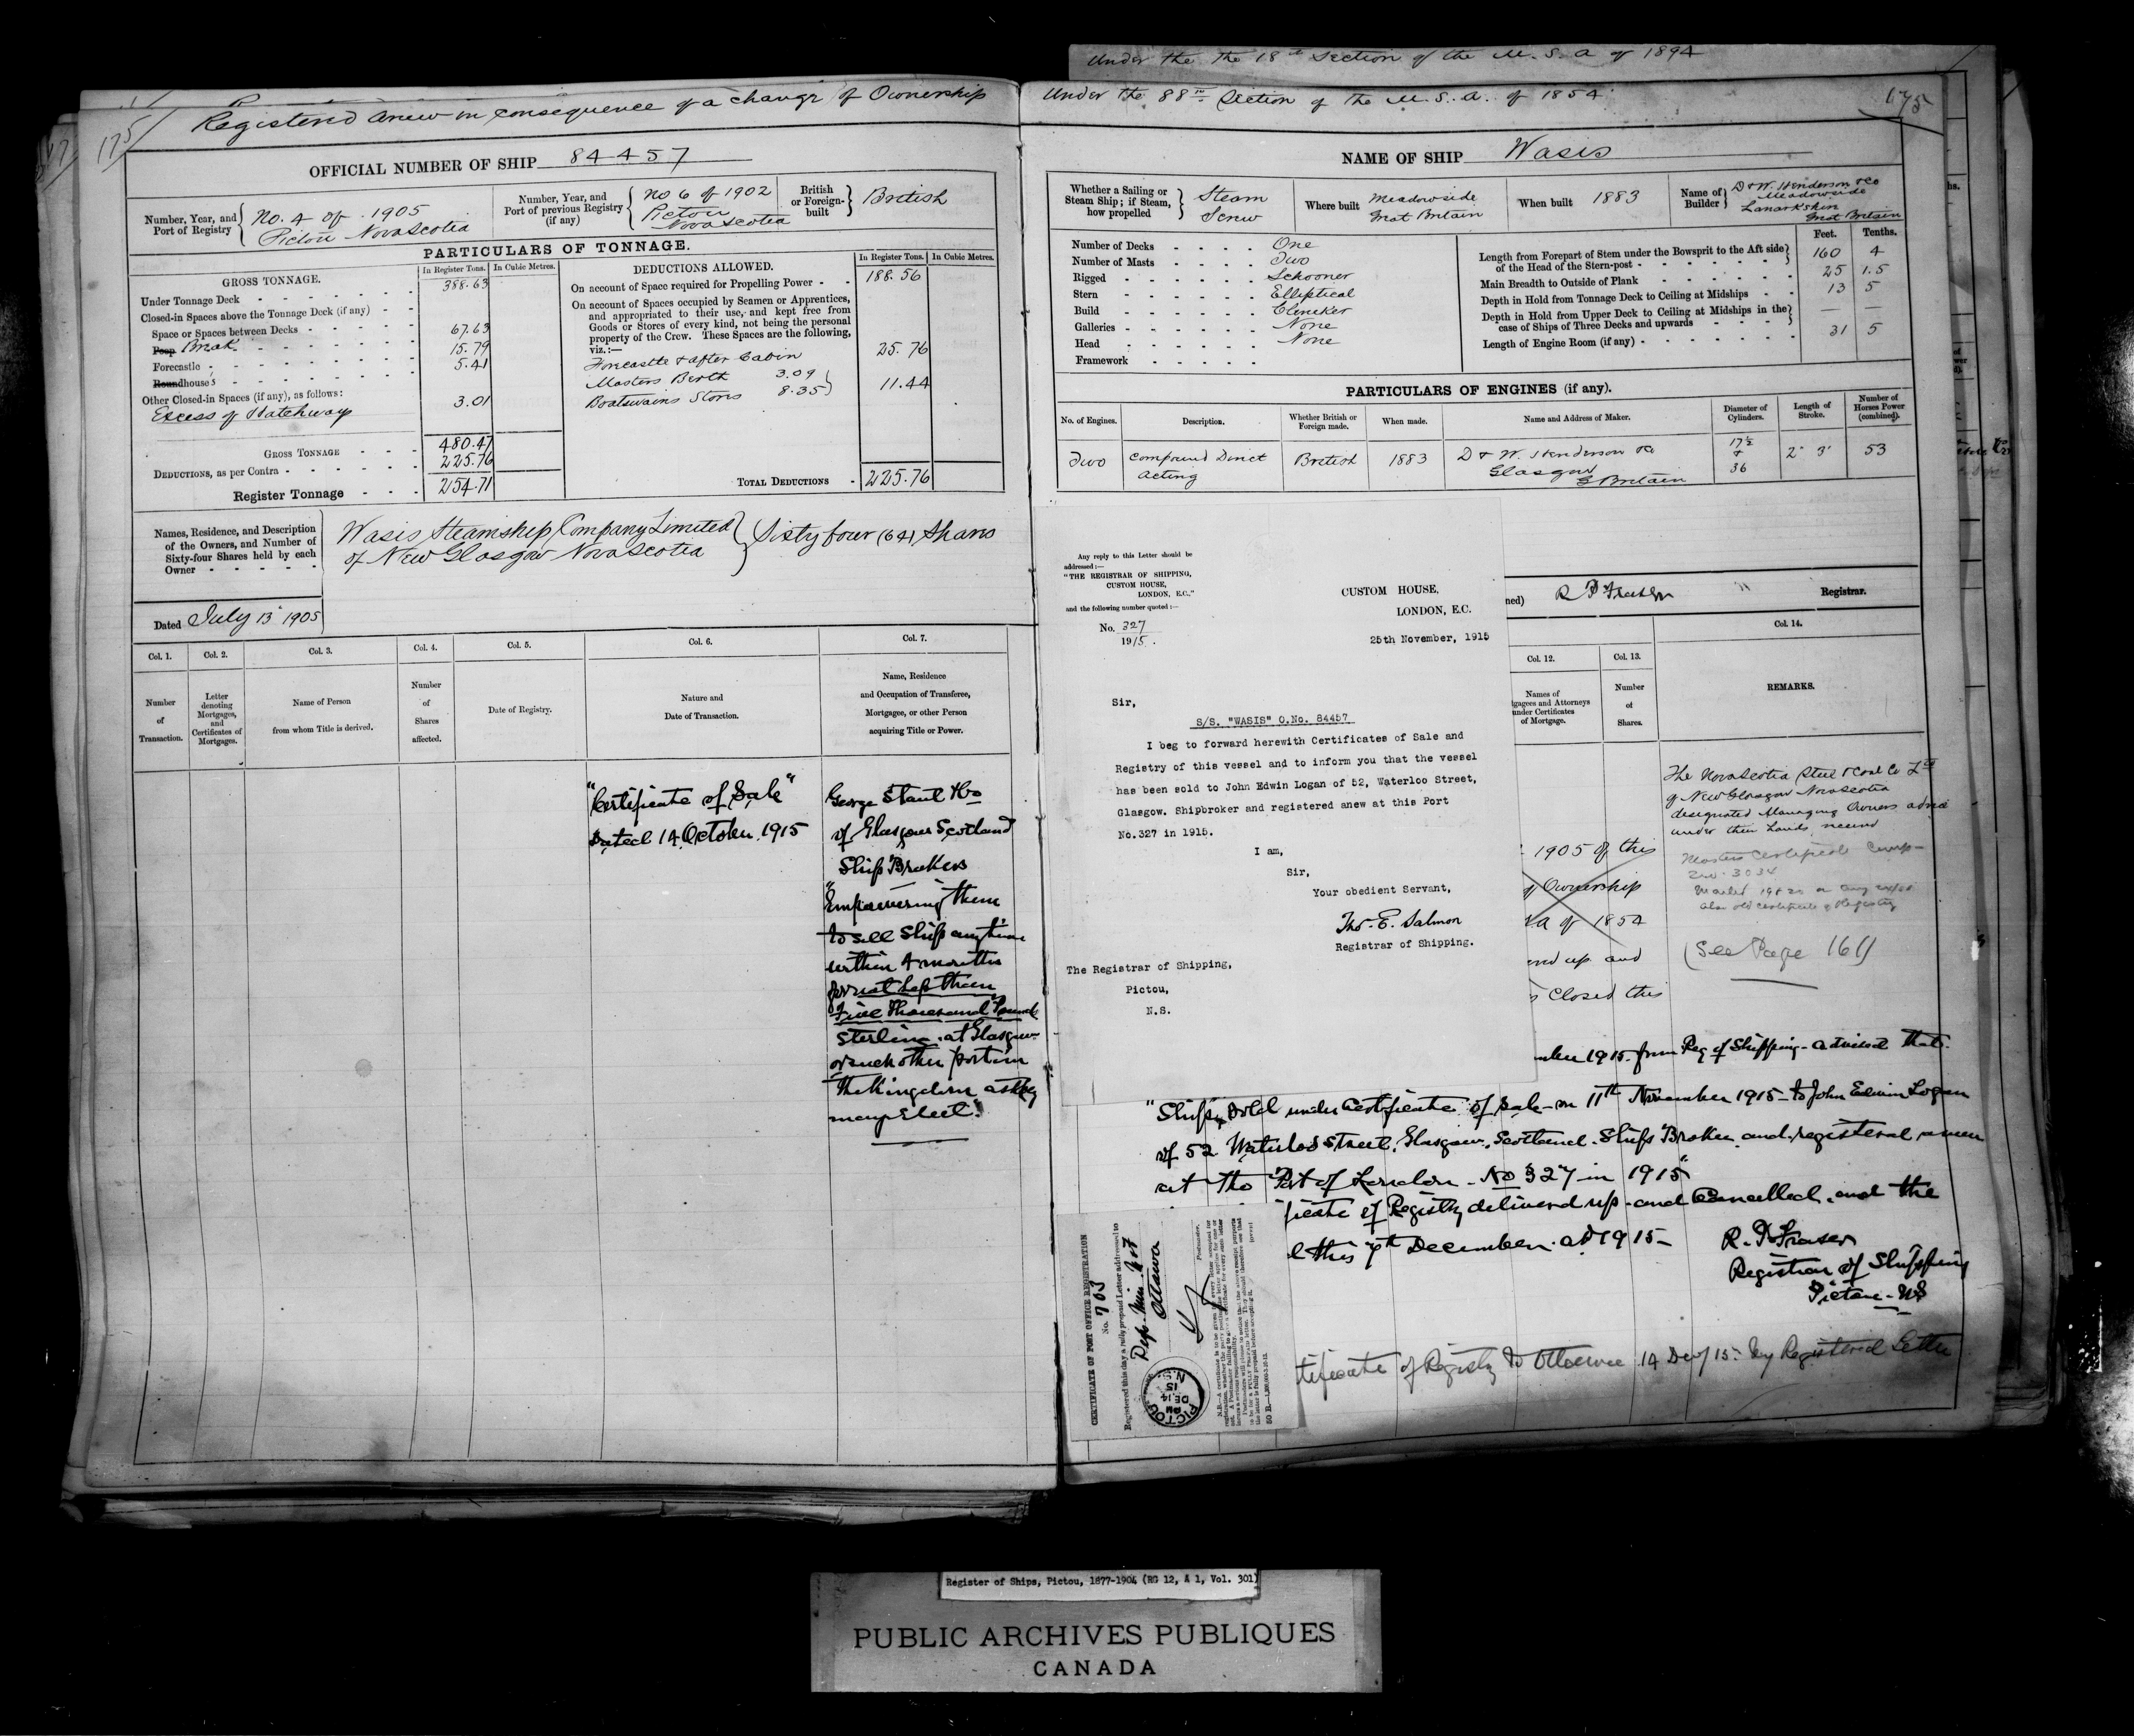 Under the the 18th Section of the M. S. A of 1894
Registered anew in consequence of a change of Ownership
Under the 88th Section of the M. S. A. of 1854
175
175
OFFICIAL NUMBER OF SHIP 84457
Number, Year, and Port of Registry
No. 4 of 1905
Pictou Nova Scotia
Number, Year, and Port of previous Registry (if any)
No 6 of 1902
Pictou
Nova Scotia
British or Foreign-built
British
PARTICULARS OF TONNAGE.
GROSS TONNAGE.
In Register Tons. In Cubic Metres.
Under Tonnage Deck 388.63
Closed-in Spaces above the Tonnage Deck (if any)
Space or Spaces between Decks 67.63
Poop Break 15.79
Forecastle 5.41
Roundhouses
Other Closed-in Spaces (if any), as follows:
Excess of Hatchways 3.01
GROSS TONNAGE 480.47
DEDUCTIONS, as per Contra 225.76
Register Tonnage 254.71
DEDUCTIONS ALLOWED.
In Register Tons. In Cubic Metres.
On account of Space required for Propelling Power 188.56
On account of Spaces occupied by Seamen or Apprentices,
and appropriated to their use, and kept free from
Goods or Stores of every kind, not being the personal
property of the Crew. These Spaces are the following,
viz.:—
Forecastle & after Cabin 25.76
Masters Berth 3.09
Boatswains Stores 8.35
11.44
TOTAL DEDUCTIONS 225.76
Names, Residence, and Description
of the Owners, and Number of
Sixty-four Shares held by each
Owner
Wasis Steamship Company Limited
of New Glasgow Nova Scotia
Sixty four (64) Shares
Dated July 13 1905
Col. 1. Col. 2. Col. 3. Col. 4. Col. 5. Col. 6. Col. 7.
Number of Transaction.
Letter denoting Mortgages, and Certificates of Mortgages.
Name of Person from whom Title is derived.
Number of Shares affected.
Date of Registry.
Nature and Date of Transaction.
Name, Residence and Occupation of Transferee, Mortgagee, or other Person acquiring Title or Power.
"Certificate of Sale"
Dated 14 October 1915
George
of Glasgow Scotland
Ship Brokers
"Empowering them
to sell Ship any time
within 4 months
for not less than
Five Thousand Pounds
Sterling. at Glasgow
or such other port in
the Kingdom as they
may Elect."
NAME OF SHIP Wasis
Whether a Sailing or Steam Ship; if Steam, how propelled
Steam
Screw
Where built
Meadowside
Great Britain
When built 1883
Name of Builder
D & W. Henderson & Co
Meadowside
Lanarkshire
Great Britain
Number of Decks One
Number of Masts Two
Rigged Schooner
Stern Elliptical
Build Clencker
Galleries None
Head None
Framework
Feet. Tenths.
Length from Forepart of Stem under the Bowsprit to the Aft side
of the Head of the Stern-post 160 4
Main Breadth to Outside of Plank 25 1.5
Depth in Hold from Tonnage Deck to Ceiling at Midships 13 5
Depth in Hold from Upper Deck to Ceiling at Midships in the
case of Ships of Three Decks and upwards — —
Length of Engine Room (if any) 31 5
PARTICULARS OF ENGINES (if any).
No. of Engines. Description. Whether British or Foreign made. When made. Name and Address of Maker. Diameter of Cylinders. Length of Stroke. Number of Horses Power (combined).
Two
Compound Direct
Acting
British
1883
D & W. Henderson & Co
Glasgow
G Britain
17½
&
36
2' 3"
53
ned) R D Fraser " Registrar.
Any reply to this Letter should be
addressed:—
"THE REGISTRAR OF SHIPPING,
CUSTOM HOUSE,
LONDON, E.C.,"
and the following number quoted:—
No. 327
1915.
CUSTOM HOUSE,
LONDON, E.C.
25th November, 1915
Sir,
S/S. "WASIS" O.No. 84457
I beg to forward herewith Certificates of Sale and
Registry of this vessel and to inform you that the vessel
has been sold to John Edwin Logan of 52, Waterloo Street,
Glasgow, Shipbroker and registered anew at this Port
No.327 in 1915.
I am,
Sir,
Your obedient Servant,
Tho. E. Salmon
Registrar of Shipping.
The Registrar of Shipping,
Pictou,
N.S.
Col. 12. Col. 13. Col. 14.
Names of
tgagees and Attorneys
under Certificates
of Mortgage.
Number
of
Shares.
REMARKS.
The Nova Scotia Steel & Coal Co Ltd
of New Glasgow Nova Scotia
designated Managing Owners advice
under their hands received
Masters Certificate Comp-
No. 3034
also old certificate of Registry
(See Page 161)
1905 of this
of Ownership
A of 1854
and up and
s Closed this
mber 1915 from Reg of Shipping - advised that.
"Ship sold under Certificate of Sale on 11th November 1915 to John Edwin Logan
of 52 Waterloo Street, Glasgow, Scotland. Ships Broker and registered anew
at the Port of London - No 327 in 1915"
ficate of Registry delivered up and Cancelled. and the
l this 7th December. AD 1915 -
R. D Fraser
Registrar of Shipping
Pictou - NS
tificate of Registry to Ottawa 14 Dec/15. by Registered Letter
CERTIFICATE OF POST OFFICE REGISTRATION
No. 703
Registered this day a fully prepaid Letter addressed to
Dep. Min.
Ottawa
Postmaster.
PICTOU
AM
DE 14
15
N.S.
(over)
Register of Ships, Pictou, 1877-1904 (RG 12, A 1, Vol. 301)
PUBLIC ARCHIVES PUBLIQUES
CANADA